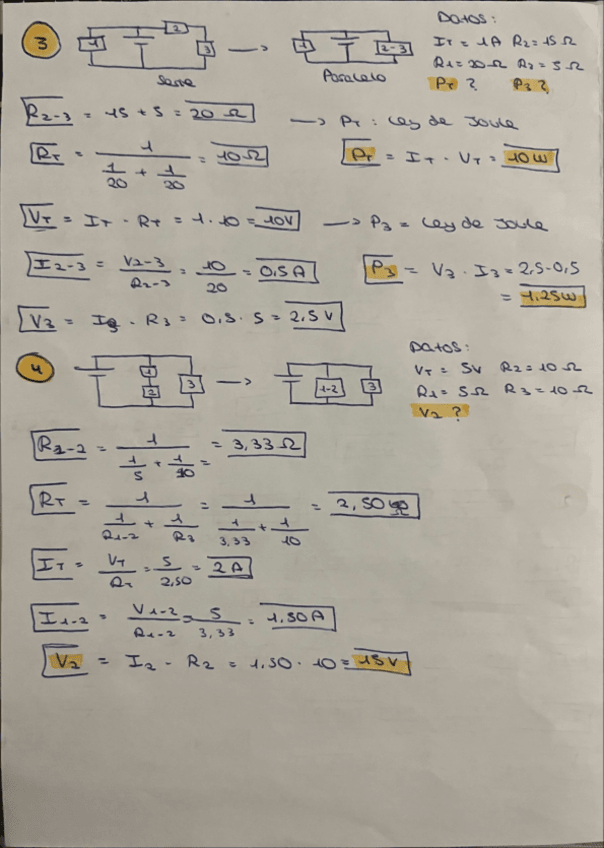 3
1
2
3
Serie
1
2-3
Paralelo
Datos:
IT = 1A R2 = 15 Ω
R1 = 20 Ω R3 = 5 Ω
PT ? P3 ?
R2-3 = 15 + 5 = 20 Ω → PT : Ley de Joule
RT = 1 / (1/20 + 1/20) = 10 Ω PT = IT · VT = 10 W
VT = IT · RT = 1 · 10 = 10V → P3 = Ley de Joule
I2-3 = V2-3 / R2-3 = 10 / 20 = 0,5 A P3 = V3 · I3 = 2,5 · 0,5
= 1,25 W
V3 = I3 · R3 = 0,5 · 5 = 2,5 V
4
1
2
3
1-2
3
Datos:
VT = 5V R2 = 10 Ω
R1 = 5 Ω R3 = 10 Ω
V2 ?
R1-2 = 1 / (1/5 + 1/10) = = 3,33 Ω
RT = 1 / (1/R1-2 + 1/R3) = 1 / (1/3,33 + 1/10) = 2,50 Ω
IT = VT / RT = 5 / 2,50 = 2 A
I1-2 = V1-2 / R1-2 = 5 / 3,33 = 1,50 A
V2 = I2 · R2 = 1,50 · 10 = 15 V